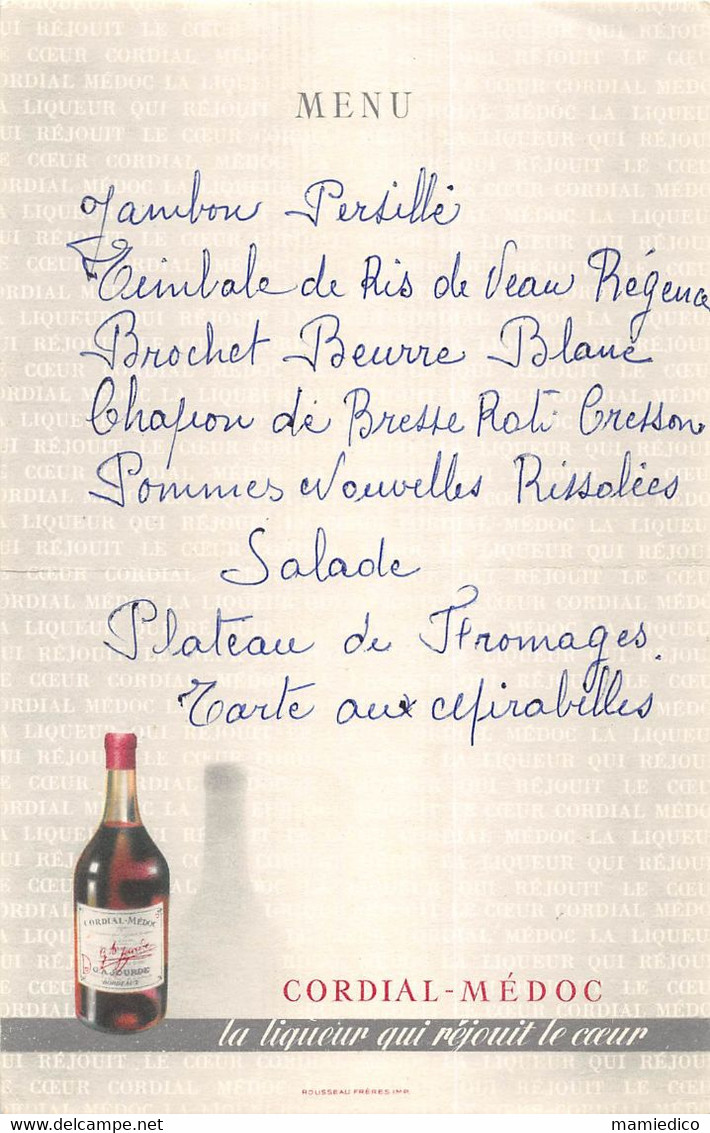 MENU
Jambon Persillé
Timbale de Ris de Veau Régence
Brochet Beurre Blanc
Chapon de Bresse Roti Cresson
Pommes Nouvelles Rissolées
Salade
Plateau de Fromages.
Tarte aux Mirabelles
CORDIAL-MÉDOC
G.A. JOURDE
BORDEAUX
CORDIAL-MÉDOC
la liqueur qui réjouit le cœur
ROUSSEAU FRÈRES IMP.
mamiedico